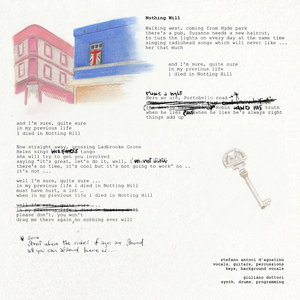 Nothing Will
Walking west, coming from Hyde park
there's a pub, Suzanne needs a new haircut,
to turn the lights on every day at the same time
singing radiohead songs which will never like ...
her that much
and I'm sure, quite sure
in my previous life
I died in Notting Hill
Here we are, Portobello road
truth
when he lies he's always right
things add up
and I'm sure, quite sure
in my previous life
I died in Notting Hill
Now straight away, crossing Ladbrooke Grove
Helen sings tango
she will try to get you involved
saying "it's great, let's do it, well, I
there's no time, it's cool but it's not going to work" no ..
it's not ...
well I'm sure, quite sure ...
in my previous life i died in Notting Hill
must have hurt, a lot ...
when in my previous life I died in Notting Hill
Well I'm sure quite sure
in my previous life I died in Notting Hill
please don't, you won't
drag me there again no nothing ever will
stefano antoci d'agostino
vocals, guitars, percussions
keys, background vocals
giuliano dottori
synth, drums, programming